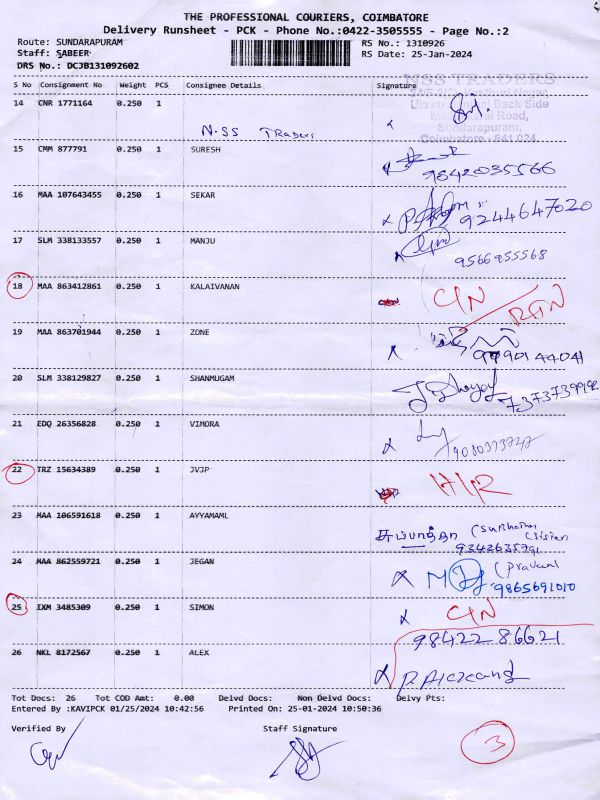 THE PROFESSIONAL COURIERS, COIMBATORE
Delivery Runsheet - PCK - Phone No.:0422-3505555 - Page No.:2
Route: SUNDARAPURAM RS No.: 1310926
Staff: SABEER RS Date: 25-Jan-2024
DRS No.: DCJB131092602
NSS TRADERS
S No Consignment No Weight PCS Consignee Details Signature
Back Side
14 CNR 1771164 0.250 1
Road,
N-SS Traders
Sundarapuram,
Coimbatore - 641 024
15 CMM 877791 0.250 1 SURESH
9842035566
16 MAA 107643455 0.250 1 SEKAR
9244647020
17 SLM 338133557 0.250 1 MANJU
9566955568
18 MAA 863412861 0.250 1 KALAIVANAN C/N
RTN
19 MAA 863701944 0.250 1 ZONE
9790144041
20 SLM 338129827 0.250 1 SHANMUGAM
21 EDQ 26356828 0.250 1 VIMORA
22 TRZ 15634389 0.250 1 JVJP H/R
23 MAA 106591618 0.250 1 AYYAMAML
சுப்பாத்தா
24 MAA 862559721 0.250 1 JEGAN
9865691010
25 IXM 3485309 0.250 1 SIMON C/N
98422 86621
26 NKL 8172567 0.250 1 ALEX
Tot Docs: 26 Tot COD Amt: 0.00 Delvd Docs: Non Delvd Docs: Delvy Pts:
Entered By :KAVIPCK 01/25/2024 10:42:56 Printed On: 25-01-2024 10:50:36
Verified By Staff Signature
3